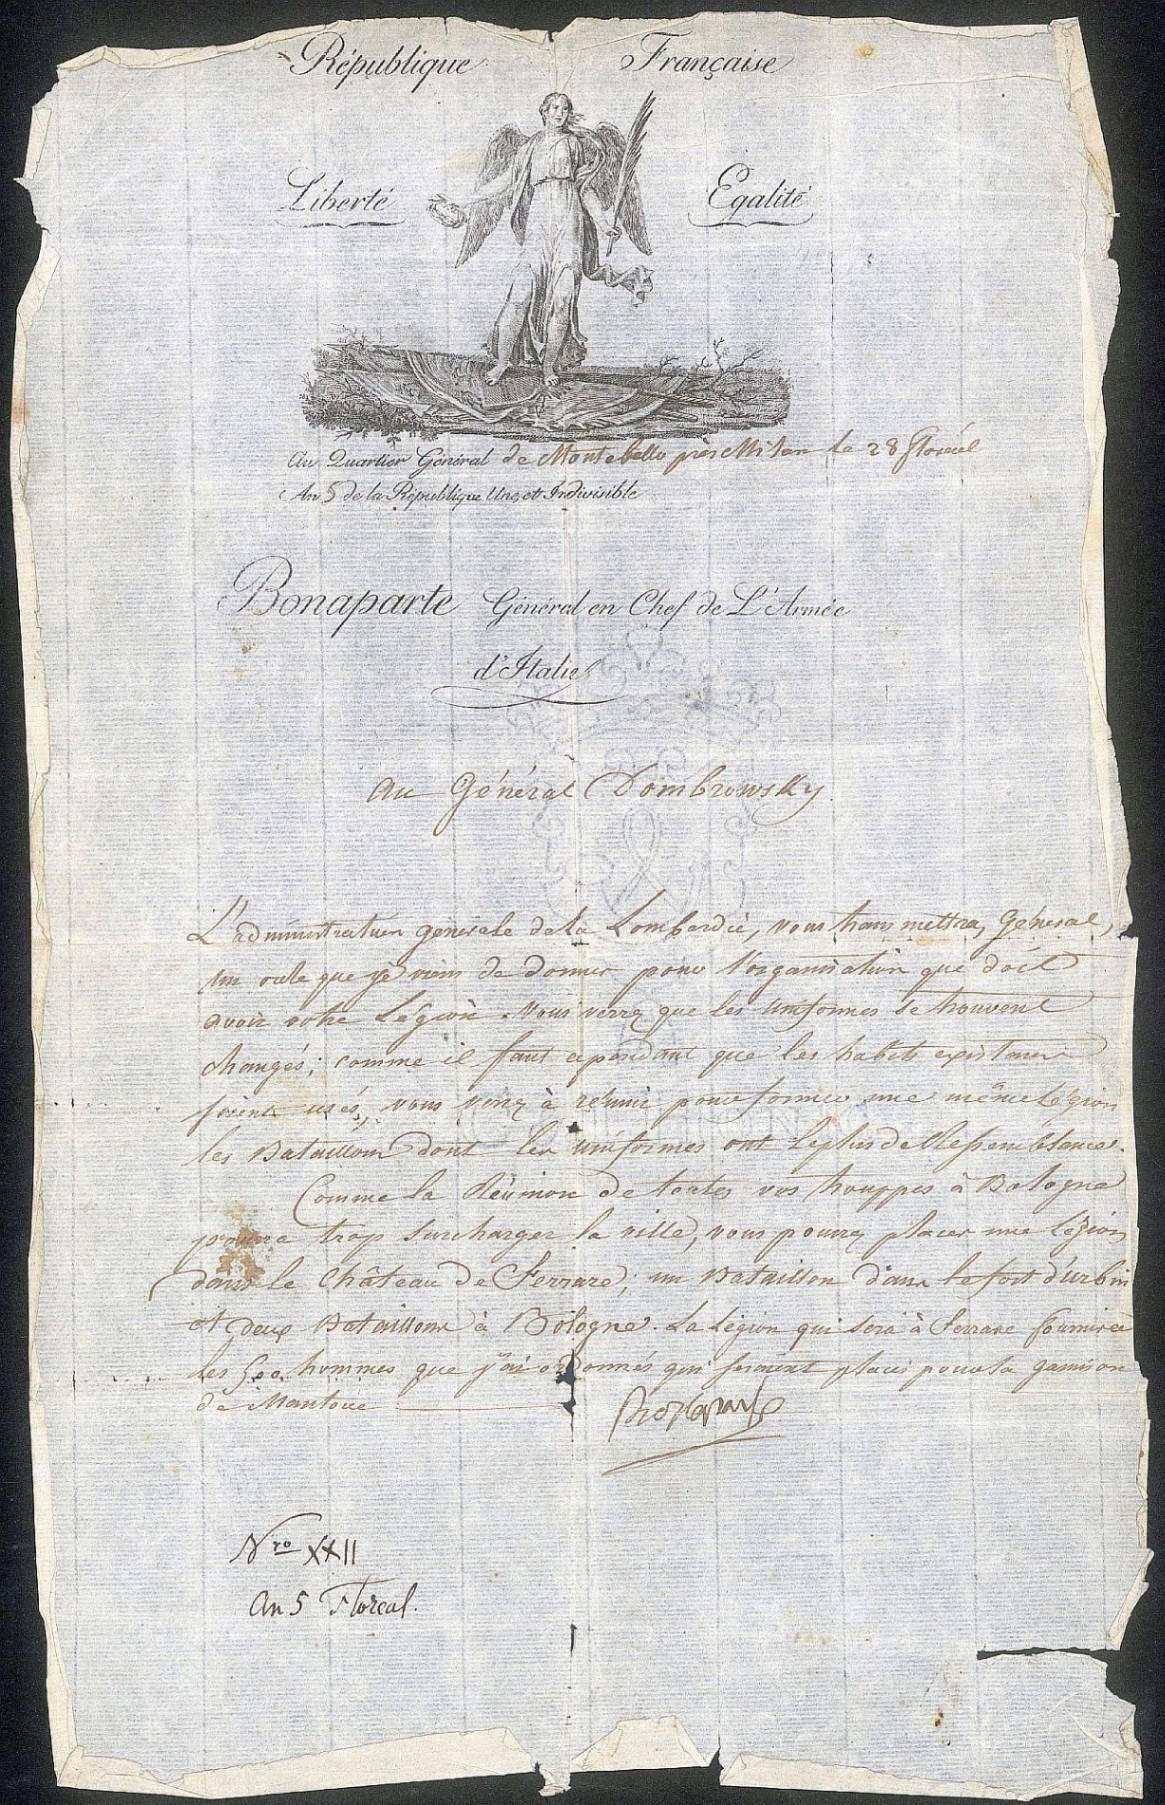 République Française
Liberté Egalité
Au Quartier Général de Montebello près Milan le 28 floréal
An 5 de la République Une et Indivisible
Bonaparte Général en Chef de L'Armée
d'Italie
Au Général Dombrowsky
L'administration générale de la Lombardie, vous transmettra, Général,
un ordre que je viens de donner pour l'organisation que doit
avoir votre Légion. Vous verrez que les uniformes se trouvent
changés; comme il faut cependant que les habits existans
soient usés, vous verrez à réunir pour former une même Légion
les Bataillons dont les uniformes ont le plus de Ressemblance.
Comme la Réunion de toutes vos trouppes à Bologne
pourra trop surcharger la ville, vous pourrez placer une Légion
dans le Château de Ferrare; un Bataillon dans le fort d'urbin
et deux Bataillons à Bologne. La Légion qui sera à Ferrare fournira
les 500 hommes que j'ai ordonnés qui seraient placés pour la garnison
de Mantoue
Bonaparte
Nro XXII
An 5 Floreal.